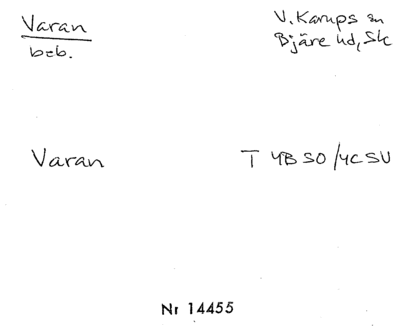 Varan
beb.
V. Karups sn
Bjäre hd, Sk
Varan
T 4B SO/4C SV
Nr 14455